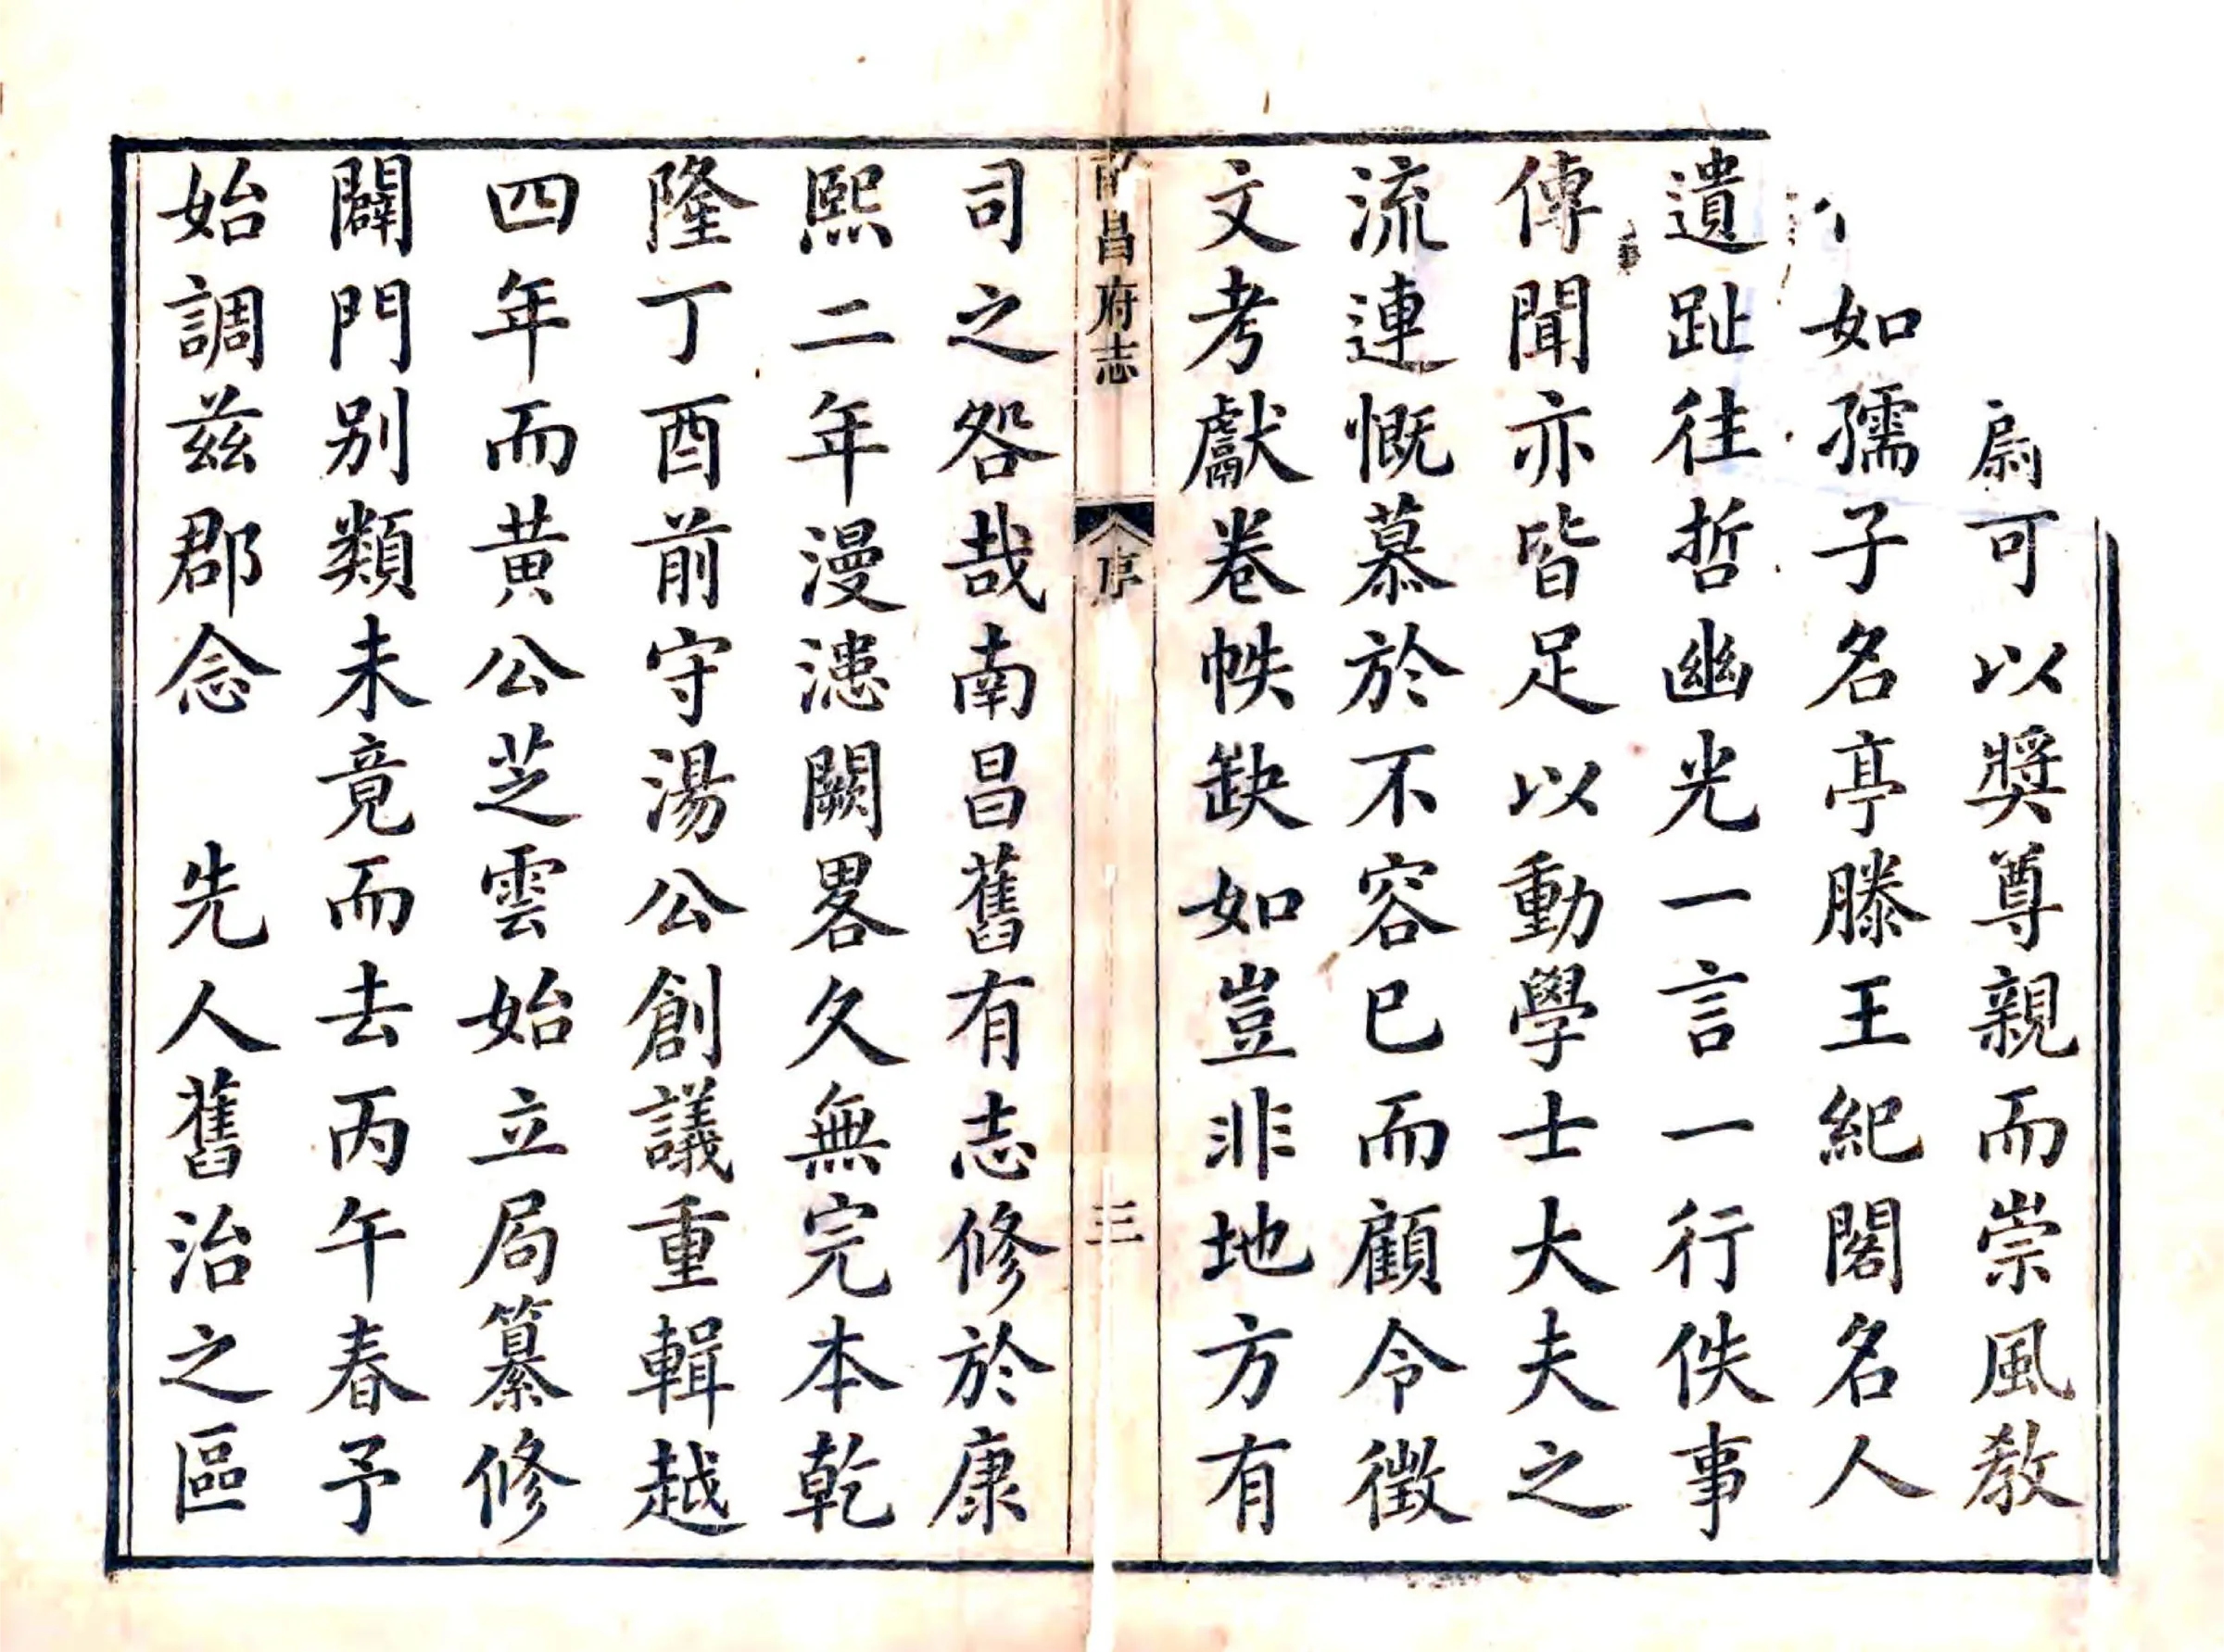 可以獎尊親而崇風教
如孺子名亭滕王紀閣名人
遺趾往哲幽光一言一行佚事
傳聞亦皆足以動學士大夫之
流連慨慕於不容已而顧令徵
文考獻卷帙缺如豈非地方有
昌府志
序
三
司之咎哉南昌舊有志修於康
熙二年漫漶闕畧久無完本乾
隆丁酉前守湯公創議重輯越
四年而黄公芝雲始立局纂修
闢門别類未竟而去丙午春予
始調兹郡念　先人舊治之區